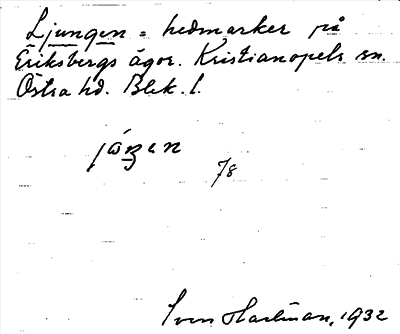 Ljungen = hedmarker på
Eriksbergs ägor. Kristianopels sn.
Östra hd. Blek. l.
78
Sven Hartman, 1932